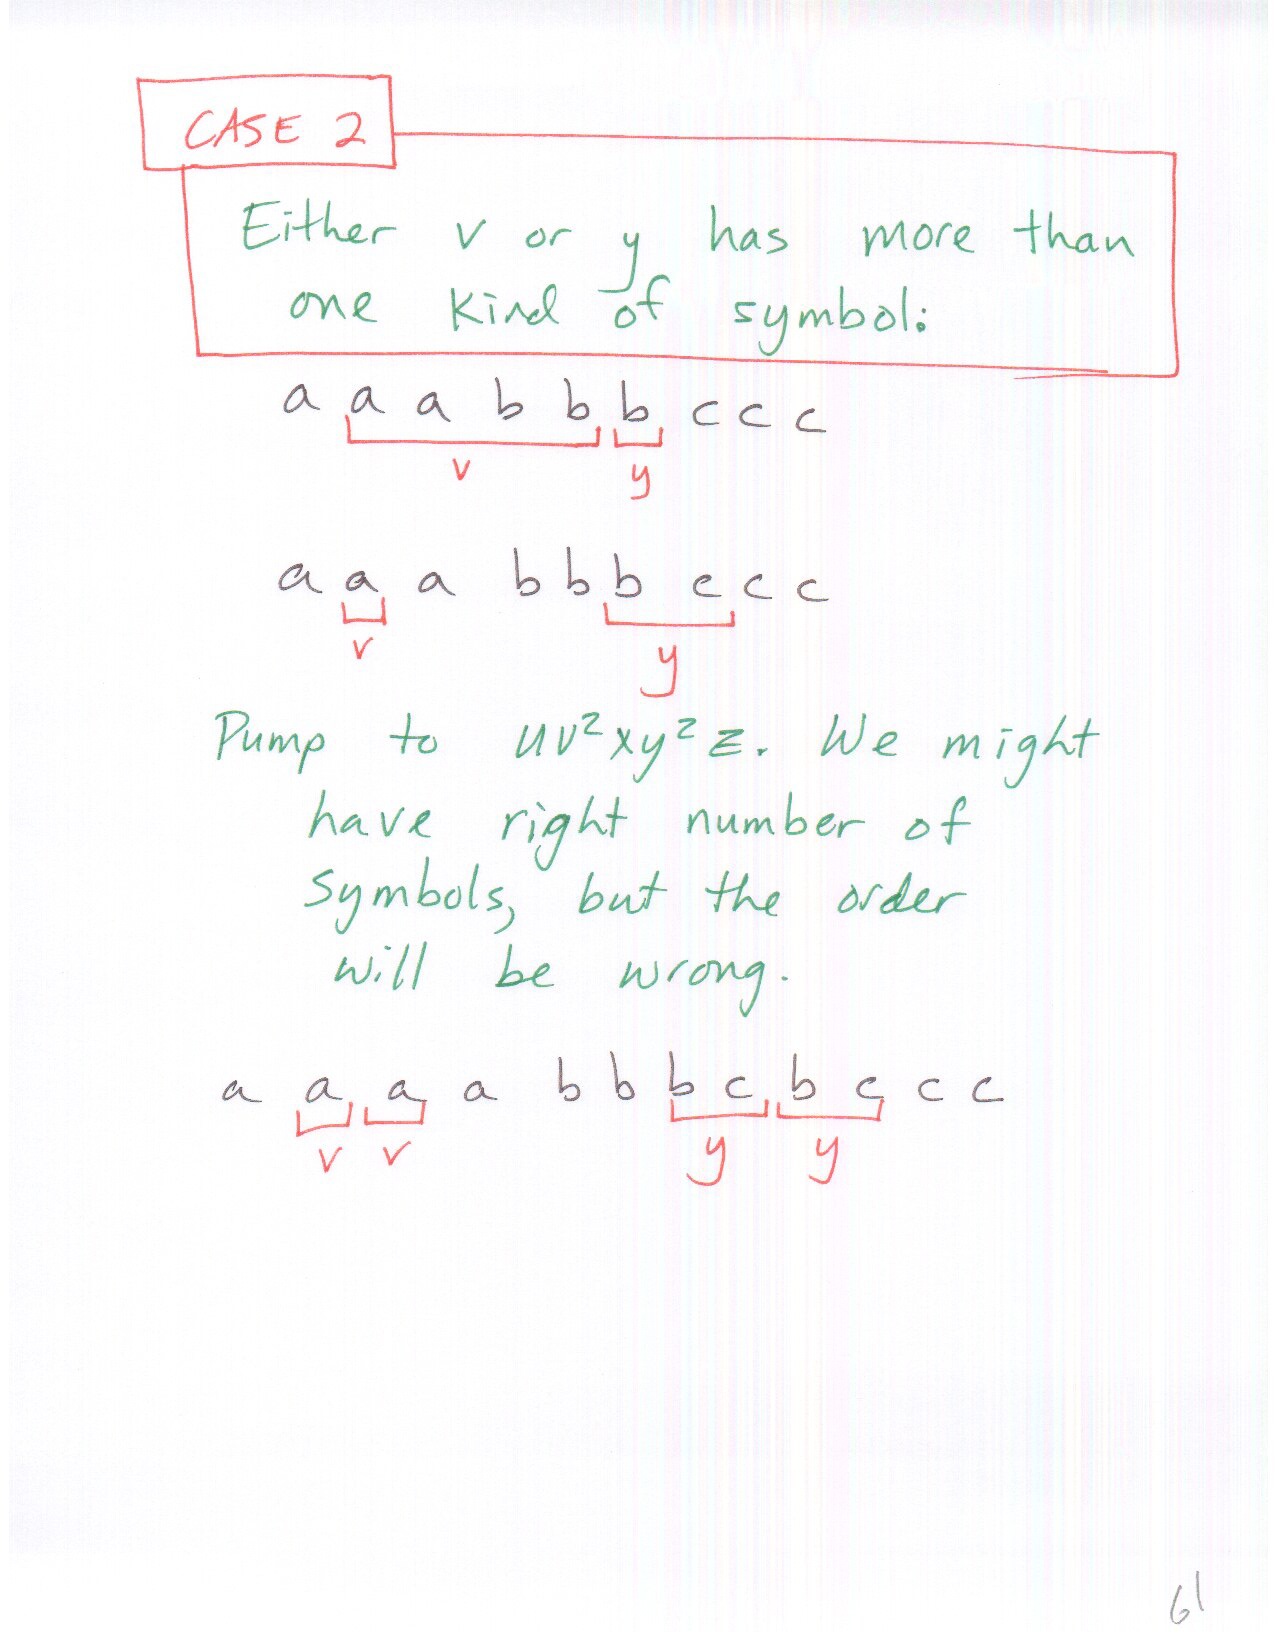 CASE 2
Either v or y has more than
one kind of symbol:
a a a b b b c c c
v y
a a a b b b c c c
v y
Pump to uv²xy²z. We might
have right number of
symbols, but the order
will be wrong.
a a a a b b b c b c c c
v v y y
61